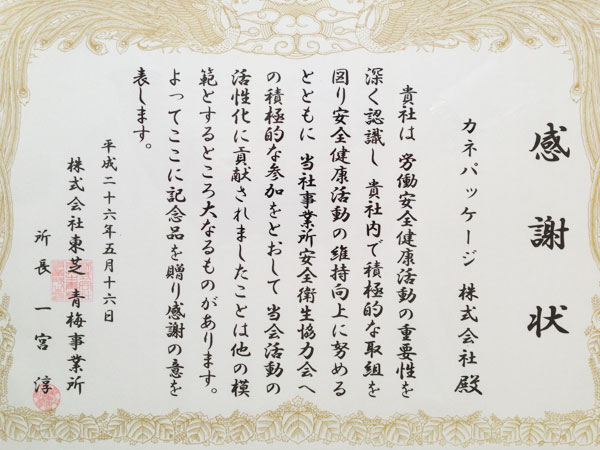 感謝状
カネパッケージ 株式会社 殿
貴社は 労働安全健康活動の重要性を
深く認識し 貴社内で積極的な取組を
図り安全健康活動の維持向上に努める
とともに 当社事業所安全衛生協力会へ
の積極的な参加をとおして 当会活動の
活性化に貢献されましたことは他の模
範とするところ大なるものがあります。
よってここに記念品を贈り感謝の意を
表します。
平成二十六年五月十六日
株式会社東芝 青梅事業所
所長 一宮 淳